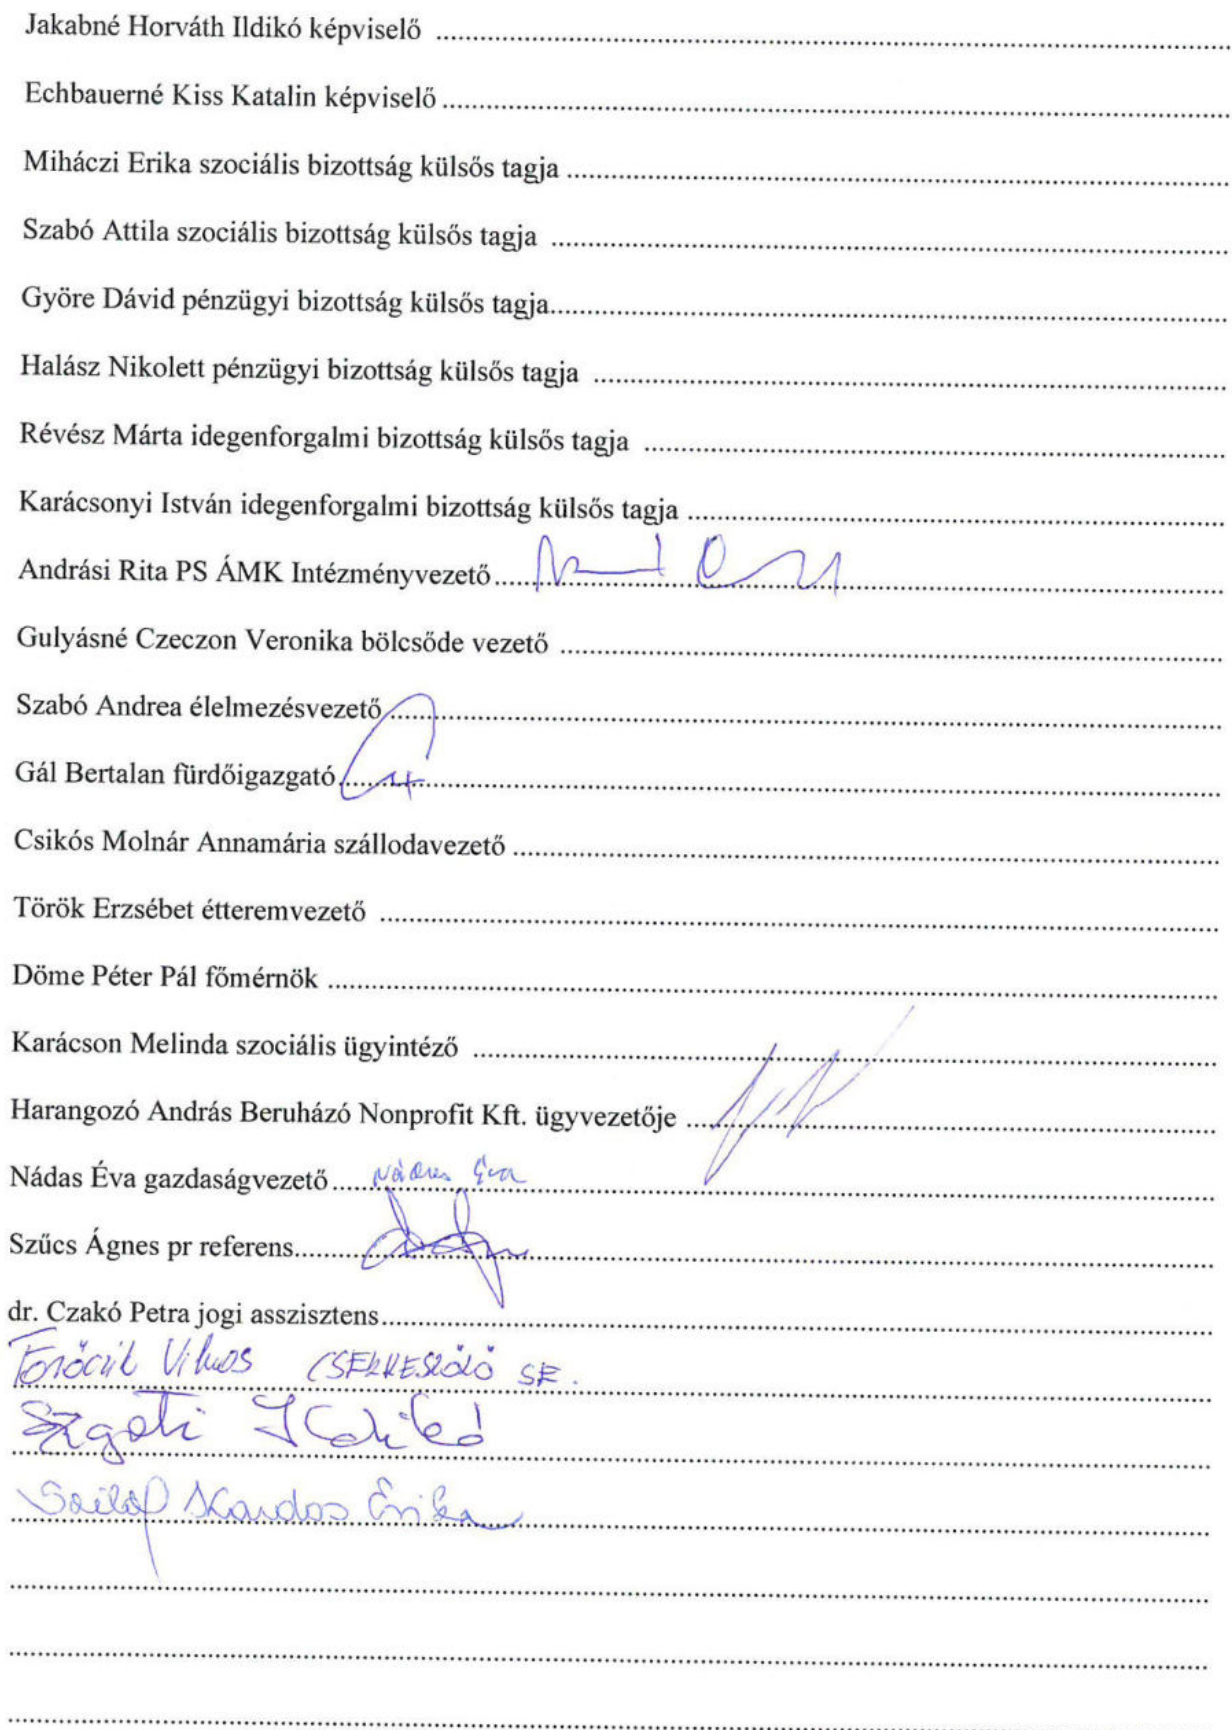 Jakabné Horváth Ildikó képviselő ........................................
Echbauerné Kiss Katalin képviselő ........................................
Miháczi Erika szociális bizottság külsős tagja ........................................
Szabó Attila szociális bizottság külsős tagja ........................................
Györe Dávid pénzügyi bizottság külsős tagja........................................
Halász Nikolett pénzügyi bizottság külsős tagja ........................................
Révész Márta idegenforgalmi bizottság külsős tagja ........................................
Karácsonyi István idegenforgalmi bizottság külsős tagja ........................................
Andrási Rita PS ÁMK Intézményvezető ........................................
Gulyásné Czeczon Veronika bölcsőde vezető ........................................
Szabó Andrea élelmezésvezető ........................................
Gál Bertalan fürdőigazgató ........................................
Csikós Molnár Annamária szállodavezető ........................................
Török Erzsébet étteremvezető ........................................
Döme Péter Pál főmérnök ........................................
Karácson Melinda szociális ügyintéző ........................................
Harangozó András Beruházó Nonprofit Kft. ügyvezetője ........................................
Nádas Éva gazdaságvezető ..... Nádas Éva
Szűcs Ágnes pr referens........................................
dr. Czakó Petra jogi asszisztens........................................
Vilmos CSERKESZŐLŐ SE.
Ildikó
Kardos Erika